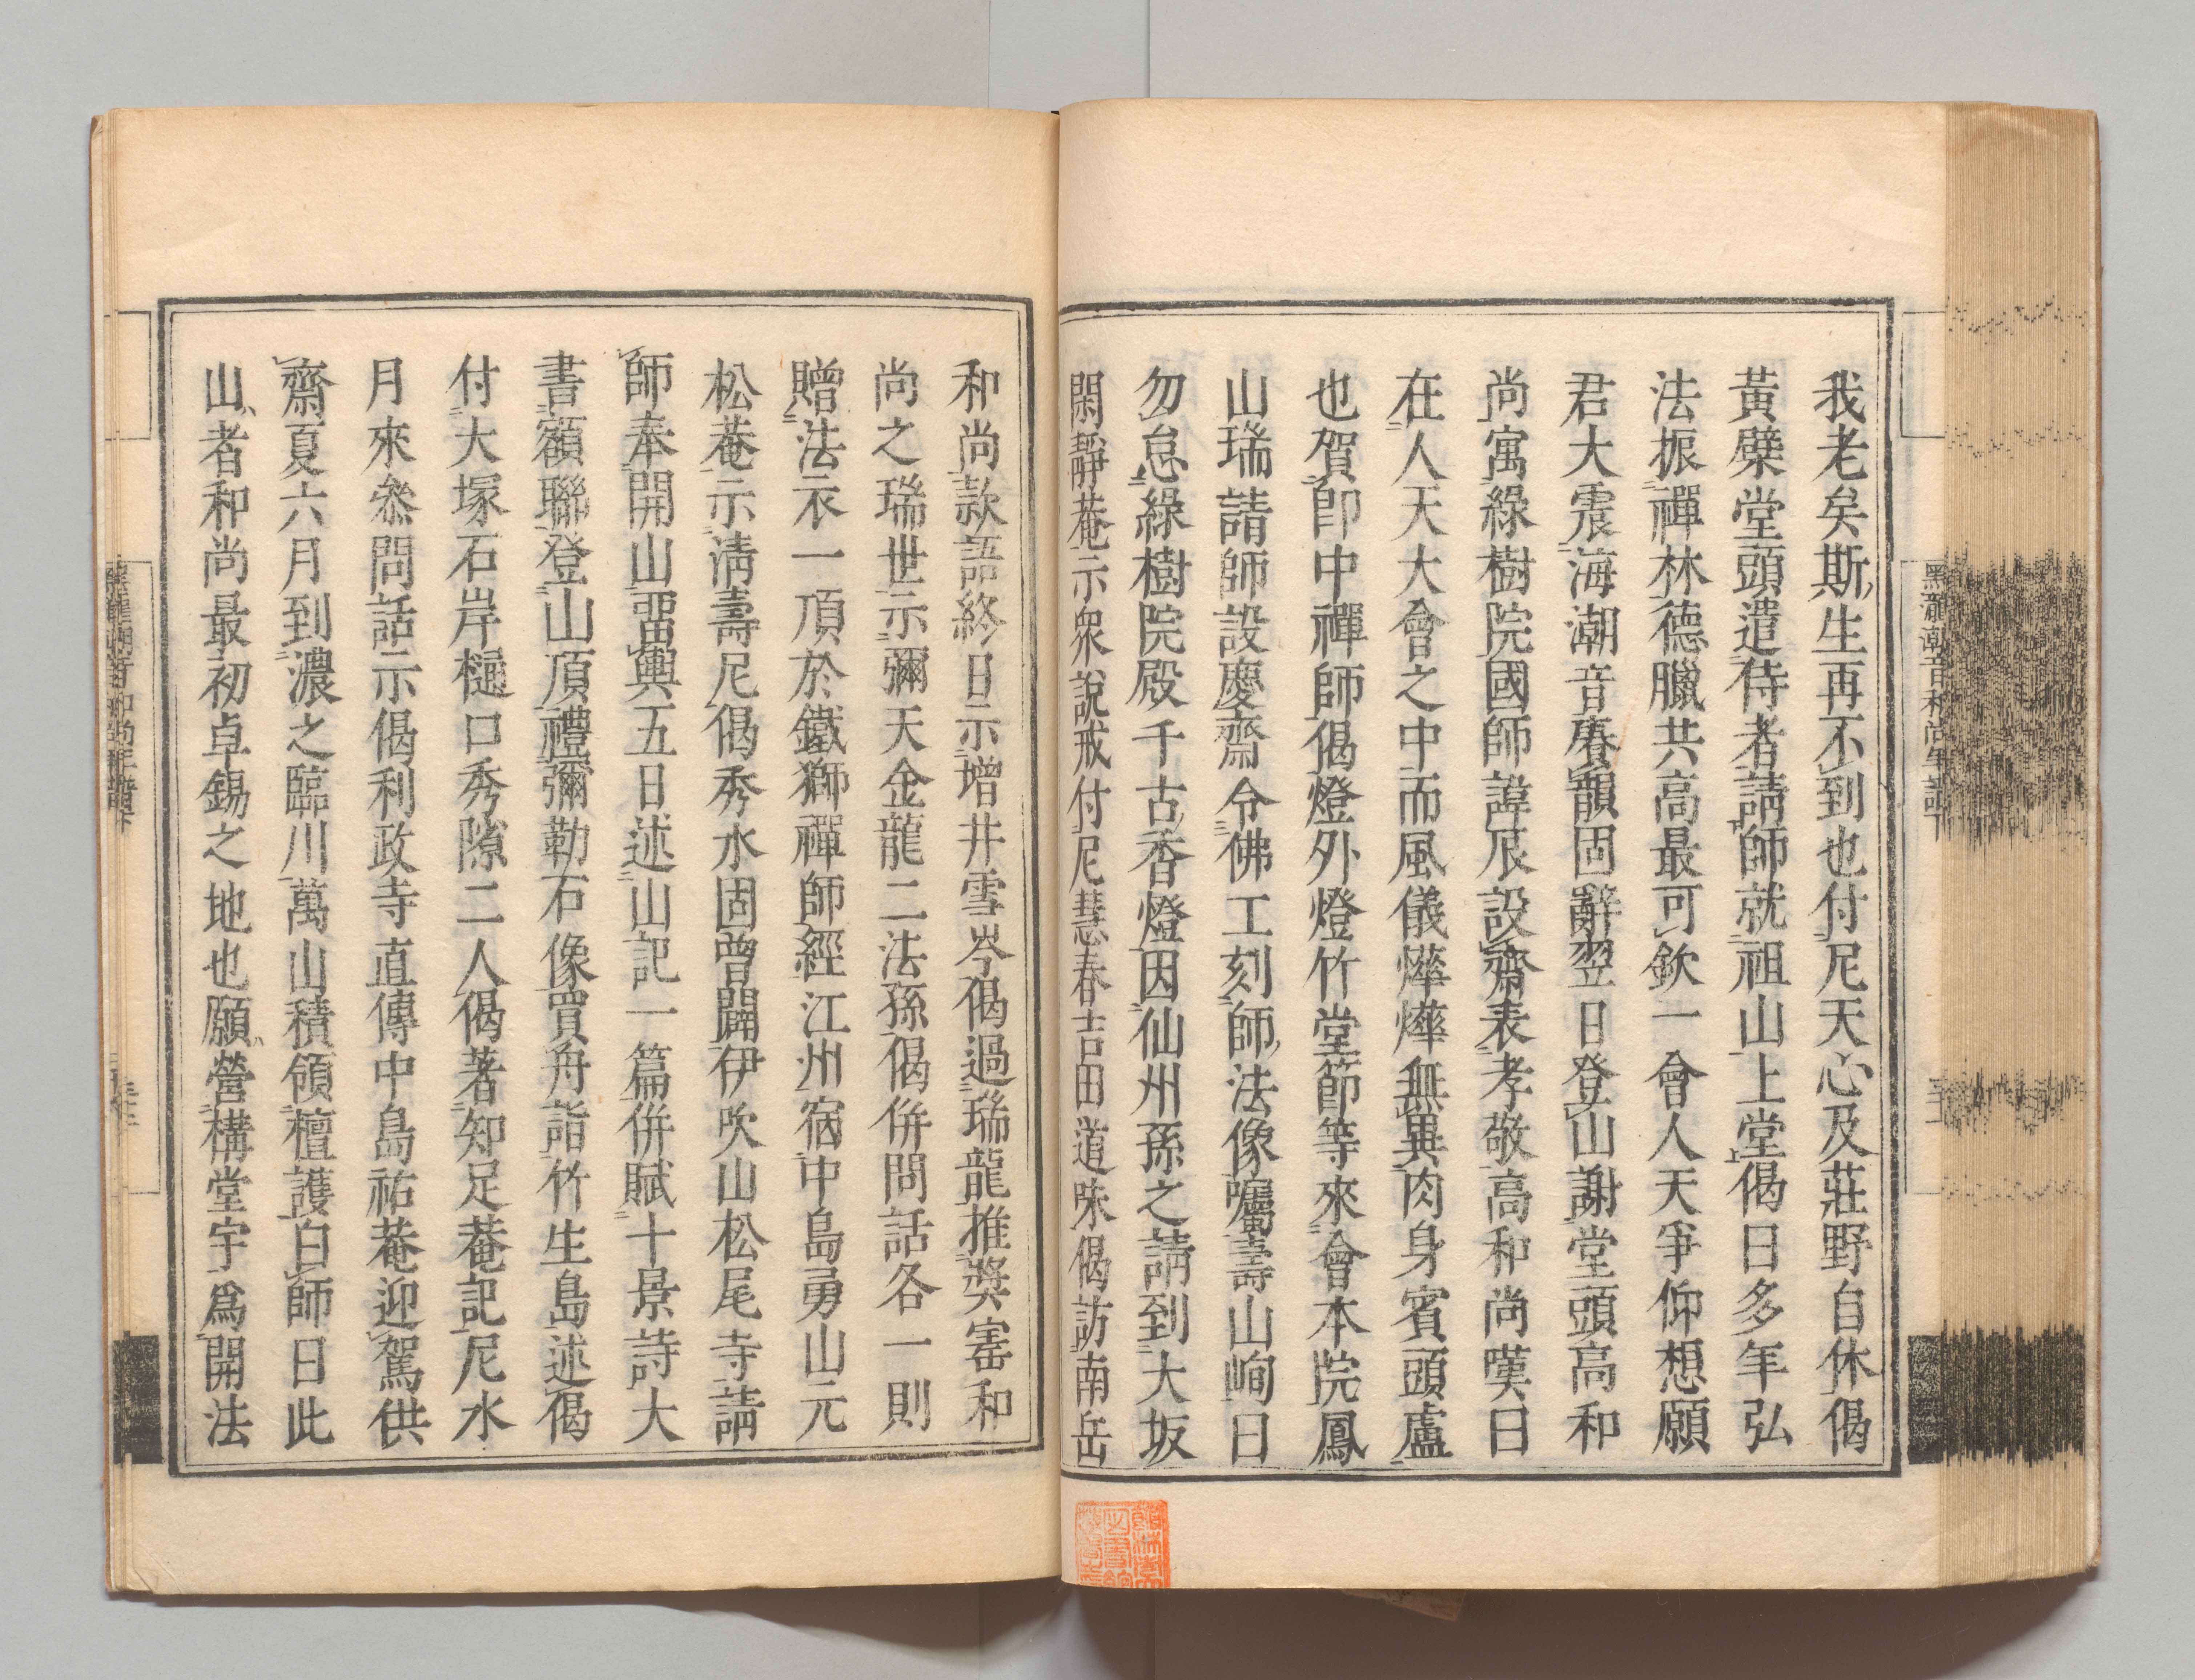 我老矣斯生再不到也付尼天心及莊野自休偈
黃檗堂頭遣侍者請師就祖山上堂偈曰多年弘
法振禪林德臘共高最可欽一會人天爭仰想願
君大震海潮音賡韻固辭翌日登山謝堂頭高和
尚寓綠樹院國師諱辰設齋表孝敬高和尚嘆曰
在人天大會之中而風儀燁燁無異肉身賓頭盧
也賀即中禪師偈燈外燈竹堂節等來會本院鳳
山瑞請師設慶齋令佛工刻師法像囑壽山峋曰
勿怠綠樹院殿千古香燈因仙州孫之請到大坂
閑靜菴示眾說戒付尼慧春吉田道味偈訪南岳
和尚款語終日示增井雪岑偈過瑞龍推奬寉和
尚之瑞世示彌天金龍二法孫偈併問話各一則
贈法衣一頂於鐵獅禪師經江州宿中島勇山元
松菴示清壽尼偈秀水固曾闢伊吹山松尾寺請
師奉開山亞輿五日述山記一篇併賦十景詩大
書額聯登山頂禮彌勒石像買舟詣竹生島述偈
付大塚石岸樋口秀隙二人偈著知足菴記尼水
月來叅問話示偈利政寺直傳中島祐菴迎駕供
齋夏六月到濃之臨川萬山積領檀護白師曰此
山者和尚最初卓錫之地也願營構堂宇爲開法
黑瀧潮音和尚年譜下